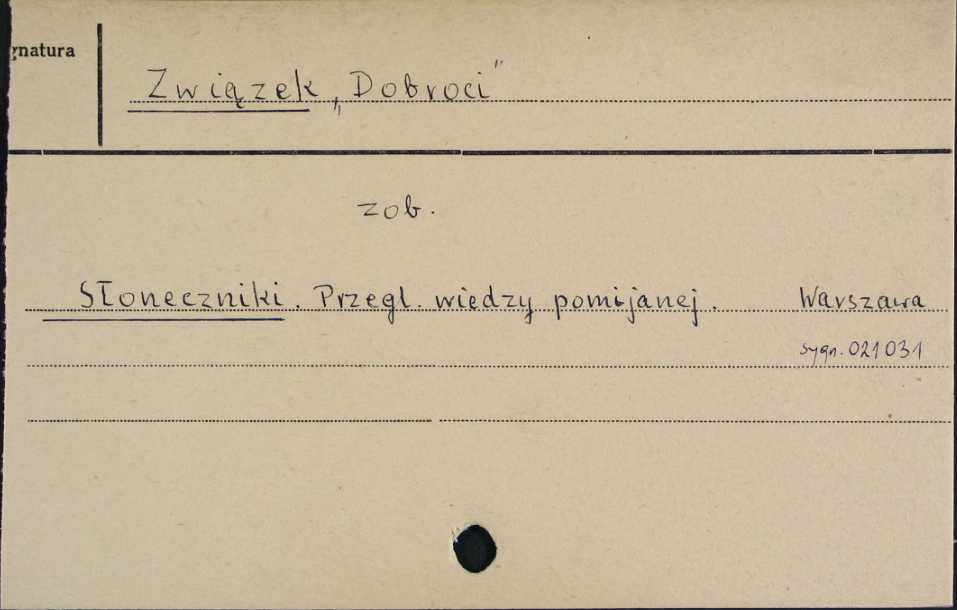 gnatura
Związek „Dobroci"
zob.
Słoneczniki. Przegl. wiedzy pomijanej. Warszawa
sygn. 021031